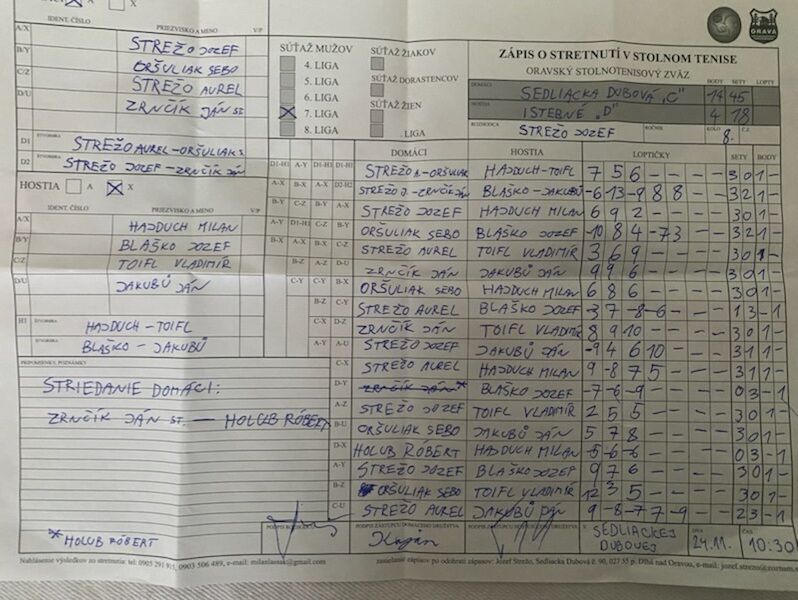 IDENT. ČÍSLO PRIEZVISKO A MENO V/P
A/X
B/Y STREŽO JOZEF
C/Z ORŠULIAK SEBO
D/U STREŽO AUREL
ZRNČÍK JÁN ST.
D1 ŠTVORHRA STREŽO AUREL-ORŠULIAK S
D2 ŠTVORHRA STREŽO JOZEF-ZRNČÍK JÁN
HOSTIA A X
IDENT. ČÍSLO PRIEZVISKO A MENO V/P
A/X HAJDUCH MILAN
B/Y BLAŠKO JOZEF
C/Z TOIFL VLADIMÍR
D/U JAKUBŮ JÁN
H1 ŠTVORHRA HAJDUCH - TOIFL
ŠTVORHRA BLAŠKO - JAKUBŮ
PRIPOMIENKY, POZNÁMKY
STRIEDANIE DOMÁCI:
ZRNČÍK JÁN ST. — HOLUB RÓBERT
*HOLUB RÓBERT
SÚŤAŽ MUŽOV
4. LIGA
5. LIGA
6. LIGA
7. LIGA
8. LIGA
SÚŤAŽ ŽIAKOV
SÚŤAŽ DORASTENCOV
SÚŤAŽ ŽIEN
. LIGA
ORAVA
ZÁPIS O STRETNUTÍ V STOLNOM TENISE
ORAVSKÝ STOLNOTENISOVÝ ZVÄZ
DOMÁCI BODY SETY LOPTY
SEDLIACKA DUBOVÁ „C" 14 45
HOSTIA ISTEBNÉ „D" 4 18
ROZHODCA STREŽO JOZEF ROČNÍK KOLO 8. Č.Z.
DOMÁCI HOSTIA LOPTIČKY SETY BODY
D1-H1 A-Y D1-H1 D1-H1 STREŽO A.-ORŠULIAK HAJDUCH-TOIFL 7 5 6 - - 3 0 1 -
A-X B-X D2-H2 STREŽO J.-ZRNČÍK JÁN BLAŠKO-JAKUBŮ -6 13 -9 8 8 - - 3 2 1 -
B-Y C-Z B-Y A-X STREŽO JOZEF HAJDUCH MILAN 6 9 2 - - - - 3 0 1 -
A-Y D1-H1 C-Z B-Y ORŠULIAK SEBO BLAŠKO JOZEF -10 8 4 -7 3 - - 3 2 1 -
B-X A-X B-X C-Z STREŽO AUREL TOIFL VLADIMÍR 3 6 9 - - - - 3 0 1 -
B-Z A-Z D-U ZRNČÍK JÁN JAKUBŮ JÁN 9 9 6 - - - - 3 0 1 -
C-Y C-Y B-X ORŠULIAK SEBO HAJDUCH MILAN 6 8 6 - - - - 3 0 1 -
B-Z C-Y STREŽO AUREL BLAŠKO JOZEF -3 7 -8 -6 - - - 1 3 - 1
C-X D-Z ZRNČÍK JÁN TOIFL VLADIMÍR 8 9 10 - - - - 3 0 1 -
A-Y A-U STREŽO JOZEF JAKUBŮ JÁN -9 4 6 10 - - - 3 1 1 -
C-X STREŽO AUREL HAJDUCH MILAN 9 -8 7 5 - - - 3 1 1 -
D-Y ZRNČÍK JÁN* BLAŠKO JOZEF -7 -6 -9 - - - - 0 3 - 1
A-Z STREŽO JOZEF TOIFL VLADIMÍR 2 5 5 - - - - 3 0 1 -
B-U ORŠULIAK SEBO JAKUBŮ JÁN 5 7 8 - - - - 3 0 1 -
D-X HOLUB RÓBERT HAJDUCH MILAN -5 -6 -6 - - - - 0 3 - 1
A-Y STREŽO JOZEF BLAŠKO JOZEF 9 7 6 - - - - 3 0 1 -
B-Z ORŠULIAK SEBO TOIFL VLADIMÍR 12 3 5 - - - - 3 0 1 -
C-U STREŽO AUREL JAKUBŮ JÁN 9 -8 -7 7 -9 - - 2 3 - 1
PODPIS ROZHODCU PODPIS ZÁSTUPCU DOMÁCEHO DRUŽSTVA PODPIS ZÁSTUPCU HOSŤUJÚCEHO DRUŽSTVA V SEDLIACKEJ DUBOVEJ DŇA 24.11. ČAS 10:30
Nahlásenie výsledkov zo stretnutia: tel: 0905 291 915, 0903 506 489, e-mail: milanlassak@gmail.com zasielanie zápisov po odohratí zápasov: Jozef Strežo, Sedliacka Dubová č. 90, 027 55 p. Dlhá nad Oravou, e-mail: jozef.strezo@zoznam.s